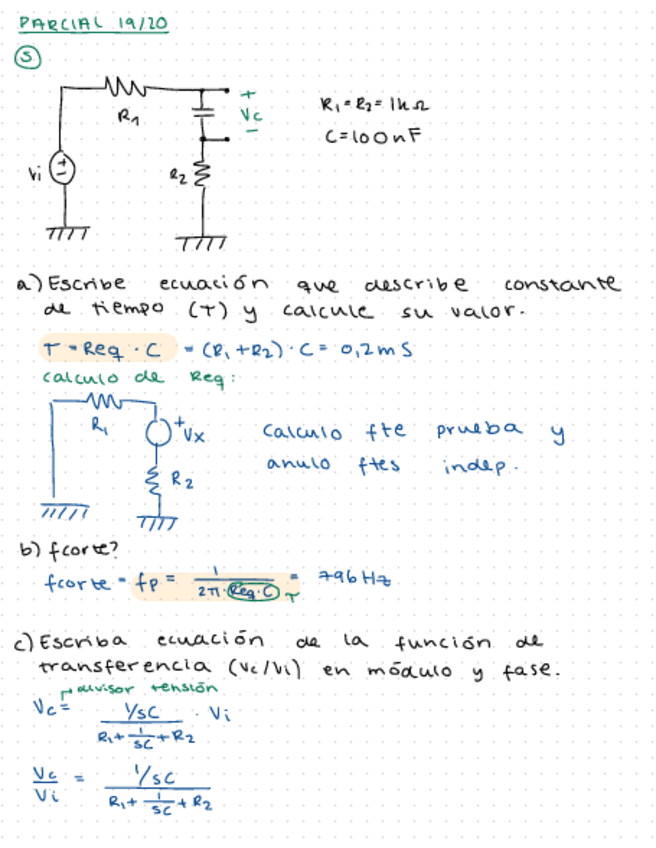 PARCIAL 19/20
5
+
R1 Vc R1 = R2 = 1kΩ
- C = 100nF
Vi + - R2
a) Escribe ecuación que describe constante
de tiempo (T) y calcule su valor.
T = Req · C = (R1 + R2) · C = 0,2mS
calculo de Req:
R1 + Vx calculo fte prueba y
R2 anulo ftes indep.
b) fcorte?
fcorte = fp = 1 / 2π · Req · C = 796 Hz
T
c) Escriba ecuación de la función de
transferencia (Vc/Vi) en módulo y fase.
divisor tensión
Vc = 1/SC / R1 + 1/SC + R2 · Vi
Vc/Vi = 1/SC / R1 + 1/SC + R2